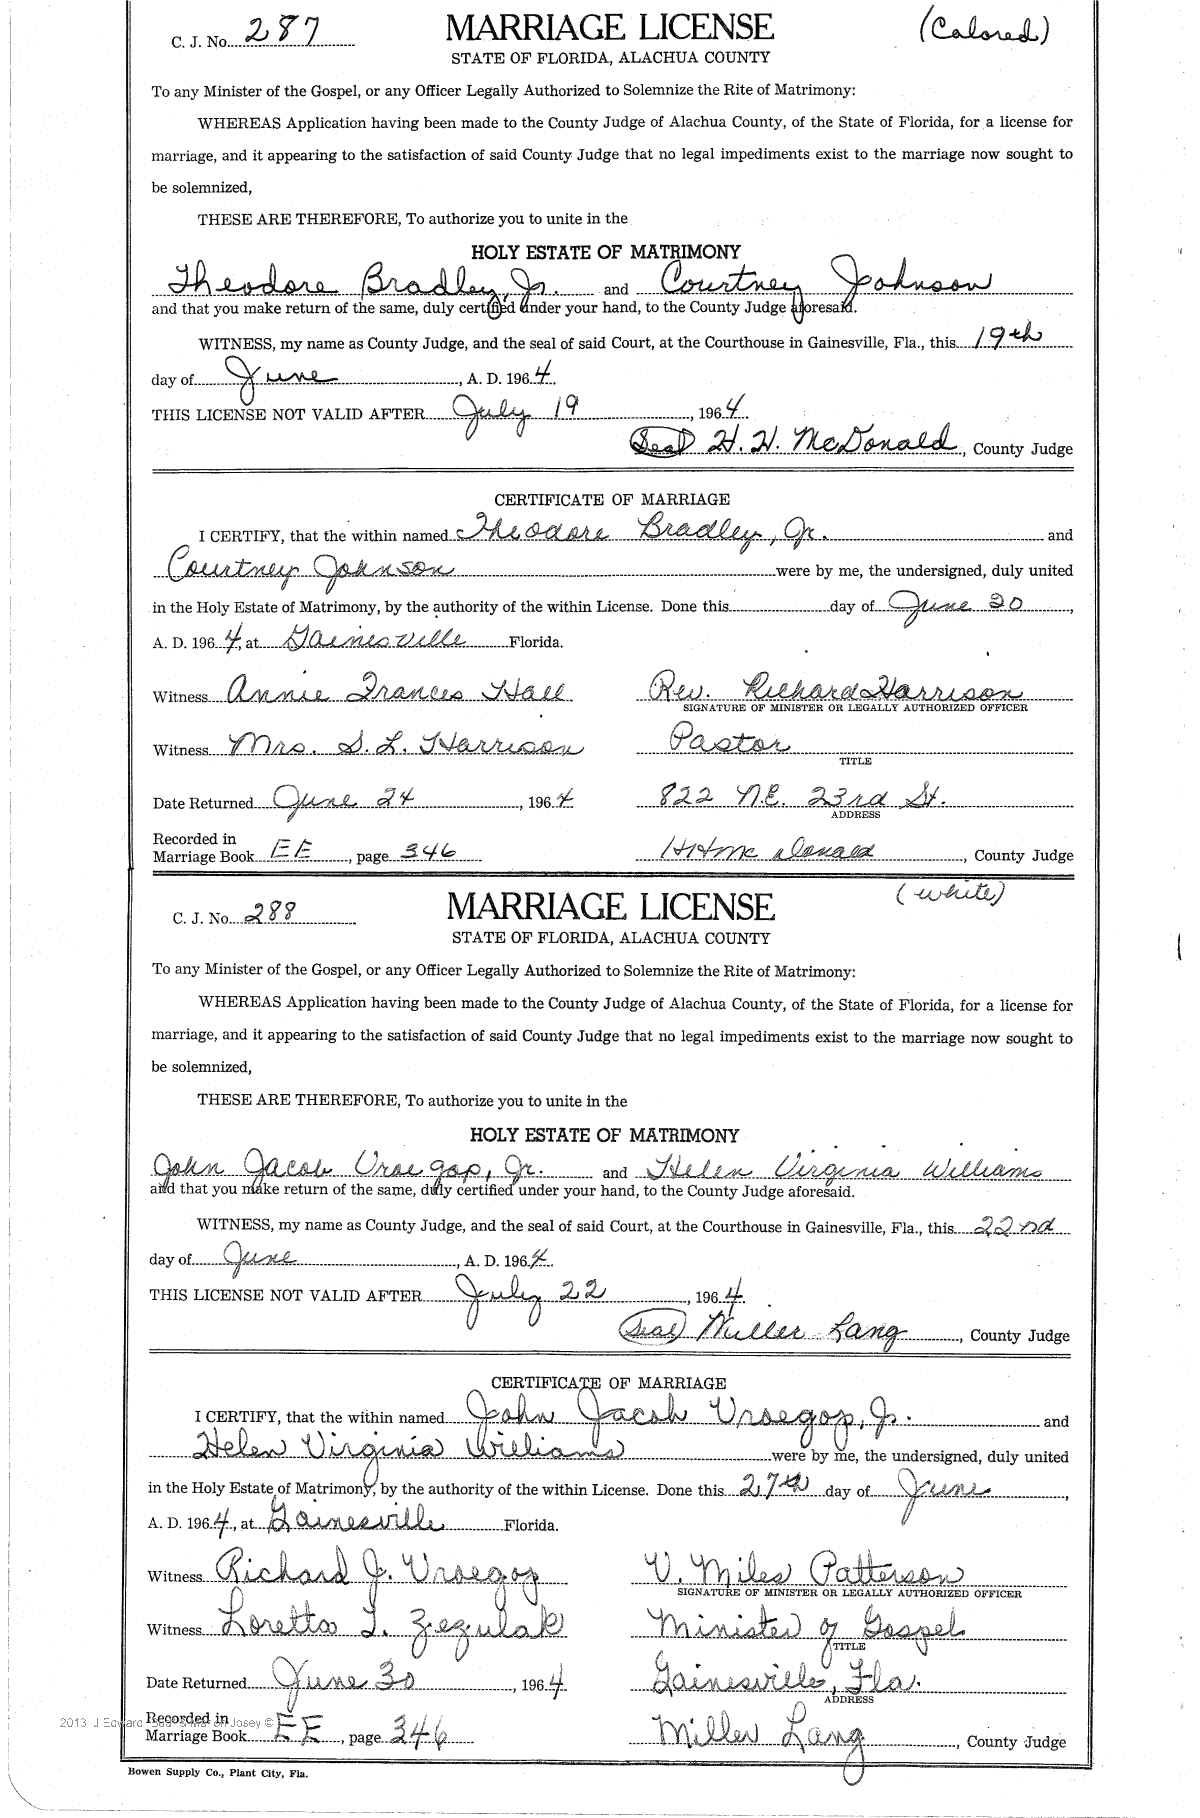 C. J. No. 287 MARRIAGE LICENSE (Colored)
STATE OF FLORIDA, ALACHUA COUNTY
To any Minister of the Gospel, or any Officer Legally Authorized to Solemnize the Rite of Matrimony:
WHEREAS Application having been made to the County Judge of Alachua County, of the State of Florida, for a license for
marriage, and it appearing to the satisfaction of said County Judge that no legal impediments exist to the marriage now sought to
be solemnized,
THESE ARE THEREFORE, To authorize you to unite in the
HOLY ESTATE OF MATRIMONY
Theodore Bradley, Jr. and Courtney Johnson
and that you make return of the same, duly certified under your hand, to the County Judge aforesaid.
WITNESS, my name as County Judge, and the seal of said Court, at the Courthouse in Gainesville, Fla., this 19th
day of June, A. D. 1964.
THIS LICENSE NOT VALID AFTER July 19, 1964
(Seal) H. H. McDonald, County Judge
CERTIFICATE OF MARRIAGE
I CERTIFY, that the within named Theodore Bradley, Jr. and
Courtney Johnson were by me, the undersigned, duly united
in the Holy Estate of Matrimony, by the authority of the within License. Done this day of June 20,
A. D. 1964, at Gainesville Florida.
Witness Annie Frances Hall Rev. Richard Harrison
SIGNATURE OF MINISTER OR LEGALLY AUTHORIZED OFFICER
Witness Mrs. S. L. Harrison Pastor
TITLE
Date Returned June 24, 1964 822 N.E. 23rd St.
ADDRESS
Recorded in
Marriage Book EE, page 346 HH McDonald, County Judge
C. J. No. 288 MARRIAGE LICENSE (white)
STATE OF FLORIDA, ALACHUA COUNTY
To any Minister of the Gospel, or any Officer Legally Authorized to Solemnize the Rite of Matrimony:
WHEREAS Application having been made to the County Judge of Alachua County, of the State of Florida, for a license for
marriage, and it appearing to the satisfaction of said County Judge that no legal impediments exist to the marriage now sought to
be solemnized,
THESE ARE THEREFORE, To authorize you to unite in the
HOLY ESTATE OF MATRIMONY
John Jacob Vroegop, Jr. and Helen Virginia Williams
and that you make return of the same, duly certified under your hand, to the County Judge aforesaid.
WITNESS, my name as County Judge, and the seal of said Court, at the Courthouse in Gainesville, Fla., this 22nd
day of June, A. D. 1964.
THIS LICENSE NOT VALID AFTER July 22, 1964
(Seal) Miller Lang, County Judge
CERTIFICATE OF MARRIAGE
I CERTIFY, that the within named John Jacob Vroegop, Jr. and
Helen Virginia Williams were by me, the undersigned, duly united
in the Holy Estate of Matrimony, by the authority of the within License. Done this 27th day of June,
A. D. 1964, at Gainesville Florida.
Witness Richard J. Vroegop V. Miles Patterson
SIGNATURE OF MINISTER OR LEGALLY AUTHORIZED OFFICER
Witness Loretta T. Zezulak Minister of Gospel
TITLE
Date Returned June 30, 1964 Gainesville, Fla.
ADDRESS
Recorded in
2013 J Edward Josey ©
Marriage Book EE, page 346 Miller Lang, County Judge
Bowen Supply Co., Plant City, Fla.